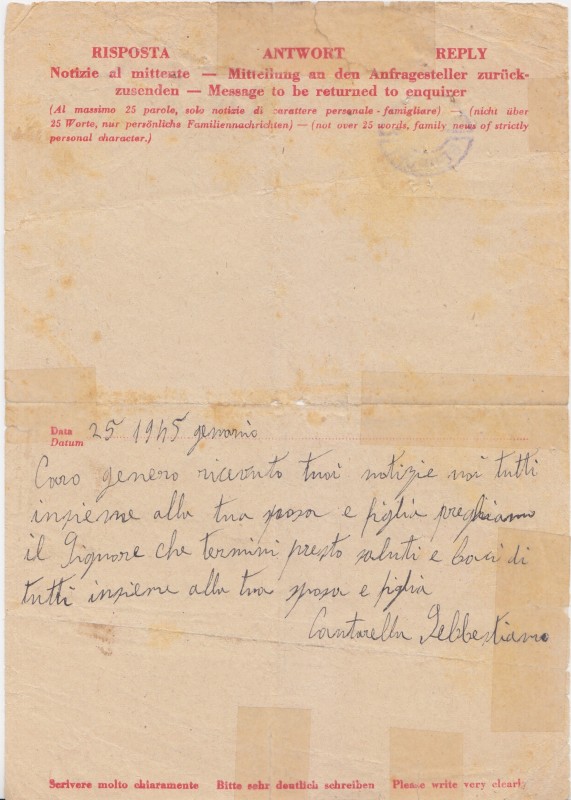 RISPOSTA ANTWORT REPLY
Notizie al mittente — Mitteilung an den Anfragesteller zurück-
zusenden — Message to be returned to enquirer
(Al massimo 25 parole, solo notizie di carattere personale - famigliare) — (nicht über
25 Worte, nur persönliche Familiennachrichten) — (not over 25 words, family news of strictly
personal character.)
Data 25 1945 gennaio
Datum
Caro genero ricevuto tuoi notizie noi tutti
insieme alla tua sposa e figlia preghiamo
il Signore che termini presto saluti e baci di
tutti insieme alla tua sposa e figlia
Cantarella
Scrivere molto chiaramente Bitte sehr deutlich schreiben Please write very clearly